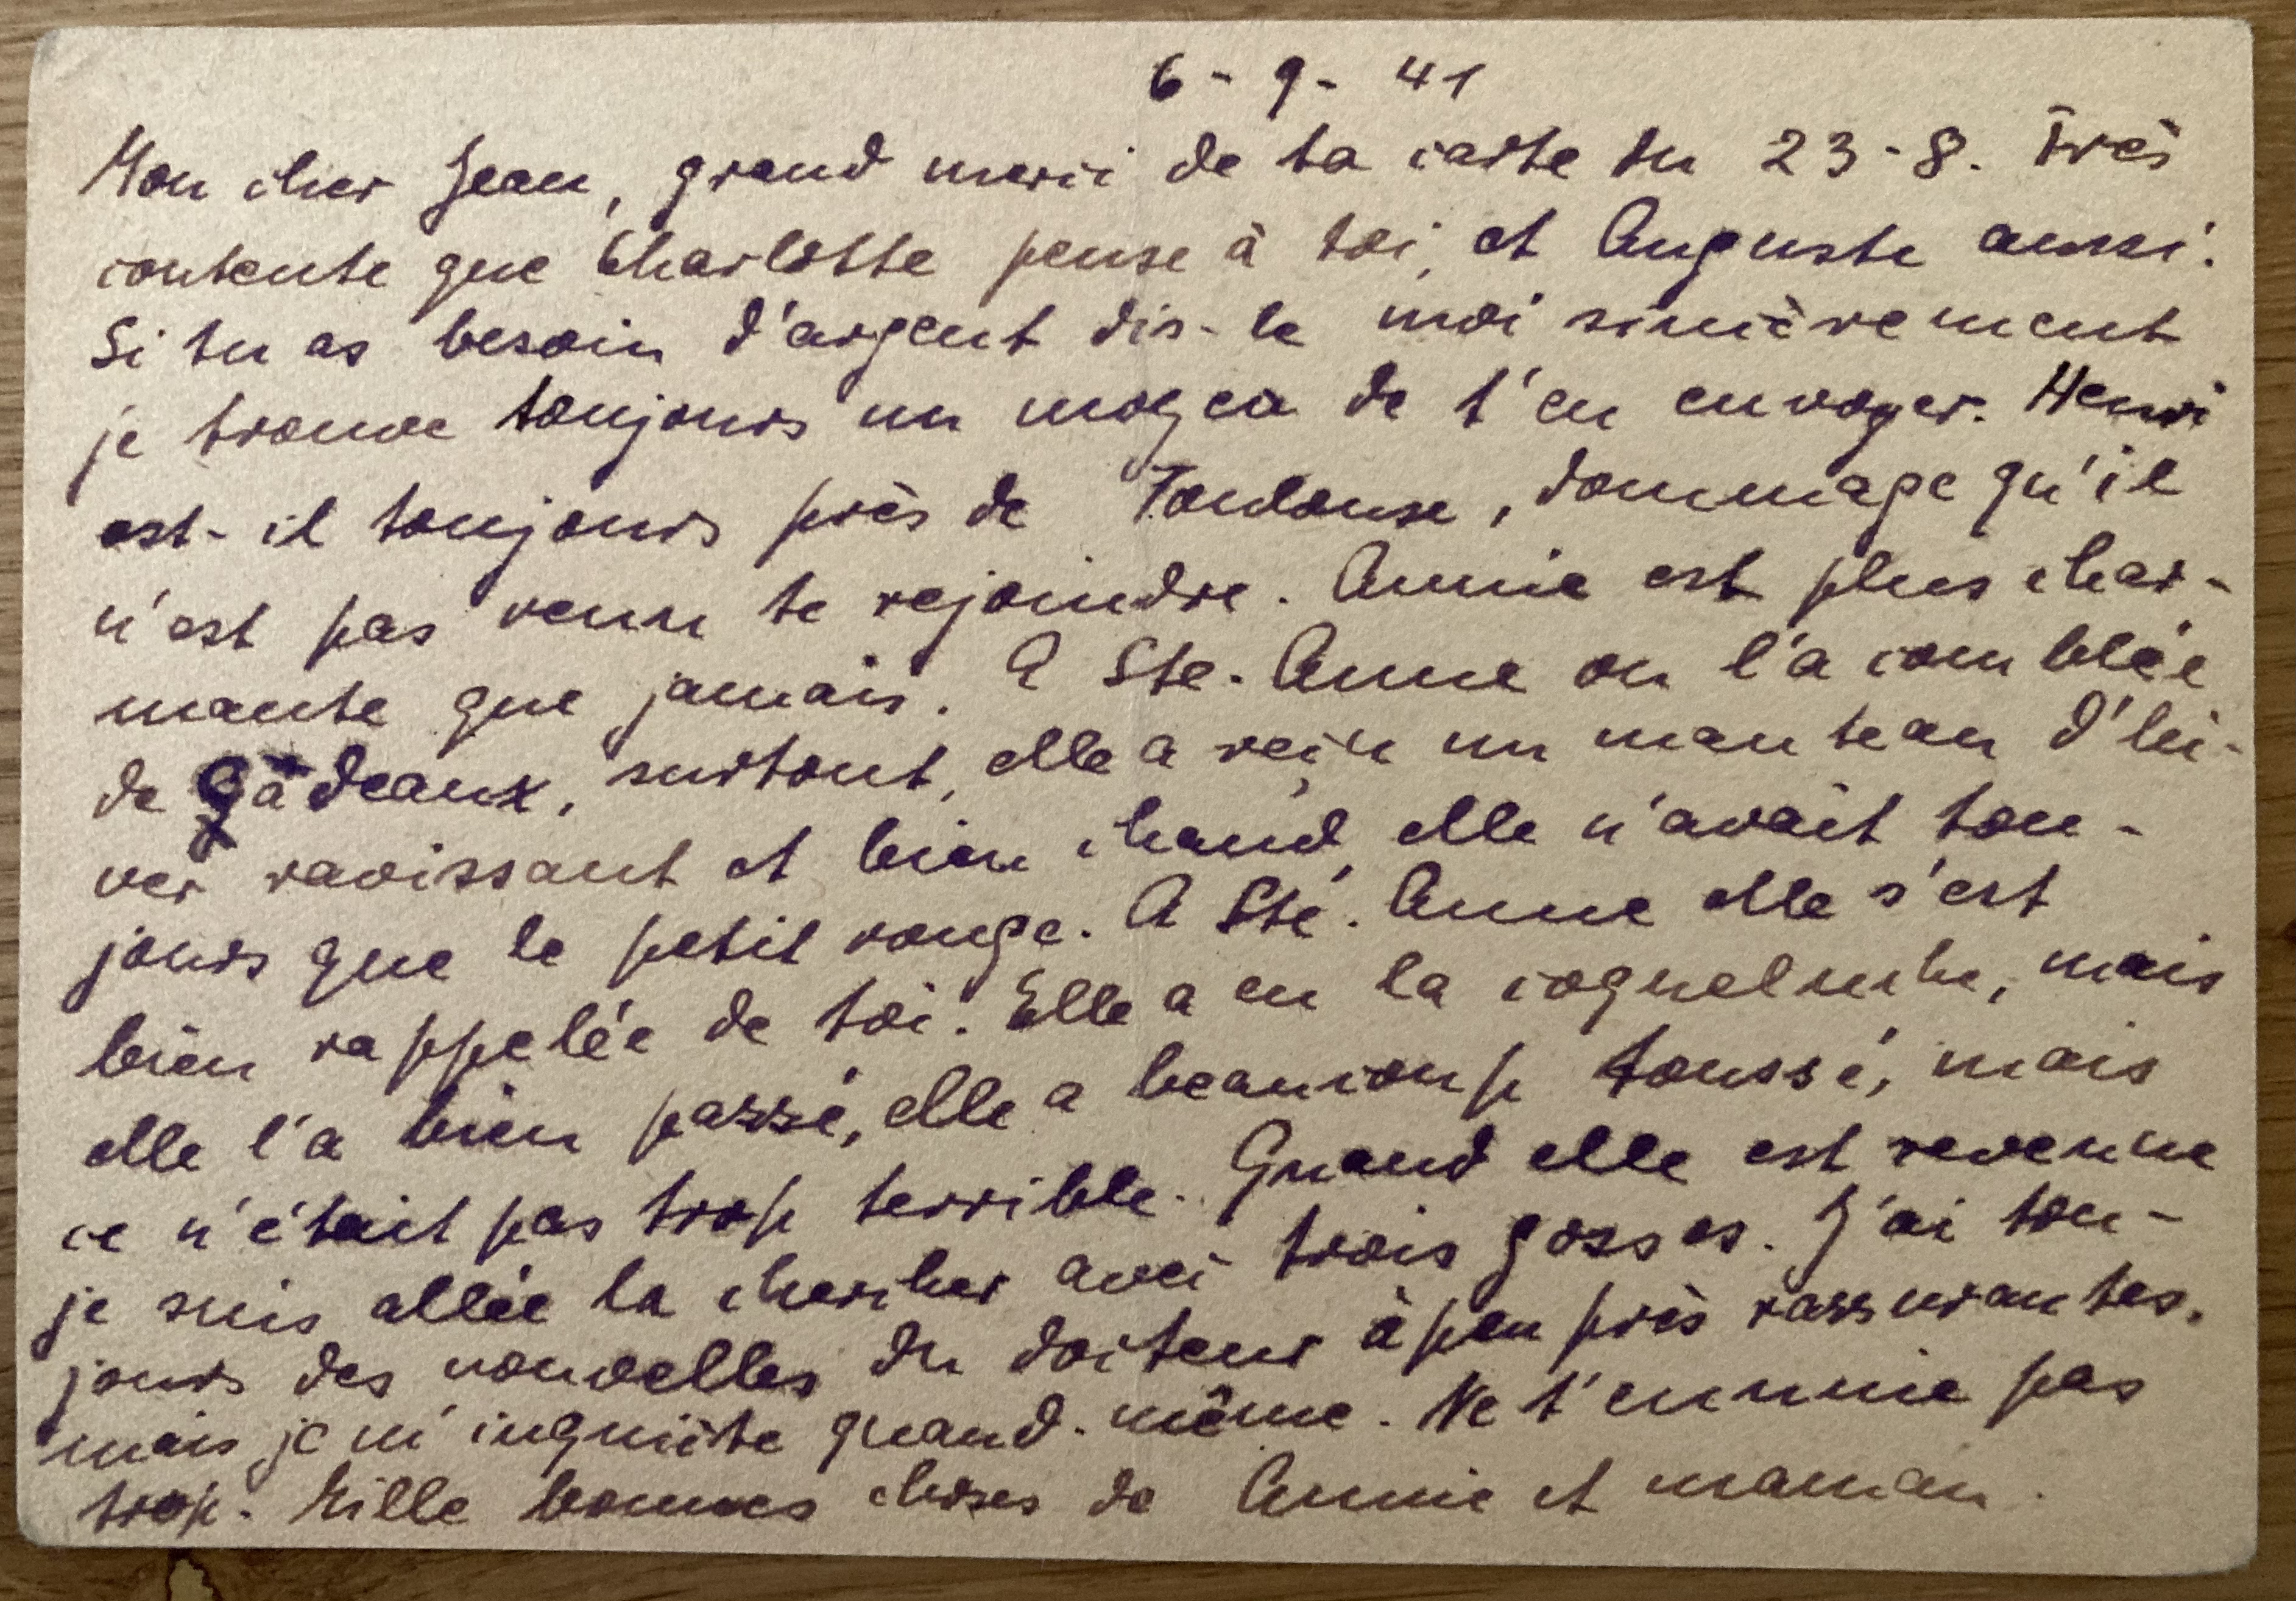 6 - 9 - 41
Mon cher Jean, grand merci de ta carte du 23-8. Très
contente que Charlotte pense à toi, et Auguste aussi.
Si tu as besoin d'argent dis-le moi sincèrement
je trouve toujours un moyen de t'en envoyer. Henri
est-il toujours près de Toulouse, dommage qu'il
n'est pas venu te rejoindre. Annie est plus char-
mante que jamais. A Ste. Anne on l'a comblée
de gâdeaux, surtout, elle a reçu un manteau d'hi-
ver ravissant et bien chaud, elle n'avait tou-
jours que le petit rouge. A Ste. Anne elle s'est
bien rappelée de toi. Elle a eu la coqueluche, mais
elle l'a bien passé, elle a beaucoup toussé, mais
ce n'était pas trop terrible. Quand elle est revenue
je suis allée la chercher avec trois gosses. J'ai tou-
jours des nouvelles du docteur à peu près rassurantes,
mais je m'inquiète quand-même. Ne t'ennuie pas
trop. Mille bonnes choses de Annie et maman.